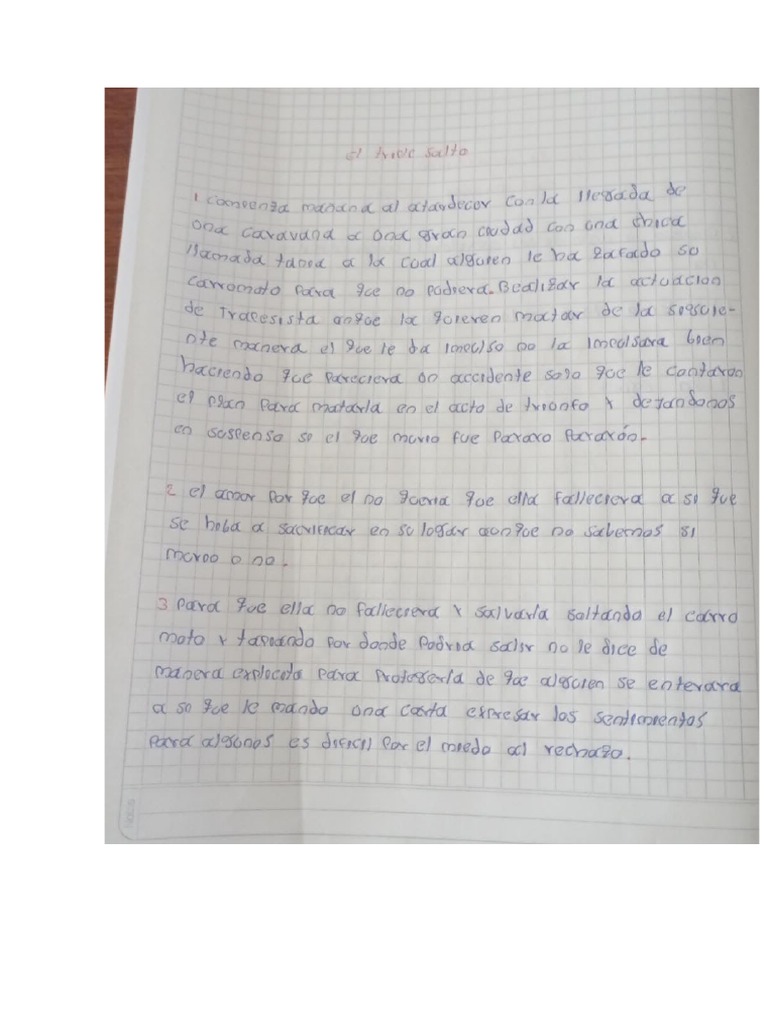 el triple salto
1 comienza mañana al atardecer con la llegada de
una caravana a una gran ciudad con una chica
llamada tania a la cual alguien le ha zafado so
carromoto para que no pudiera. Realizar la actuacion
de Trapesista anque la quieren matar de la siguie-
nte manera el que le da impulso no la impulsara bien
haciendo que pareciera un accidente solo que le contaron
el plan para matarla en el acto de triunfo y dejandonos
en suspenso si el que murio fue Paraxo Paraxón.
2 el amor por que el no queria que ella falleciera a si que
se hiba a sacrificar en su lugar aunque no sabemos si
murio o no.
3 para que ella no falleciera y salvarla saltando el carro
moto y tapeando por donde podria salir no le dice de
manera explicita para protegerla de que alguien se enterara
a si que le mando una carta expresar los sentimientos
para algunos es dificil por el miedo al rechazo.